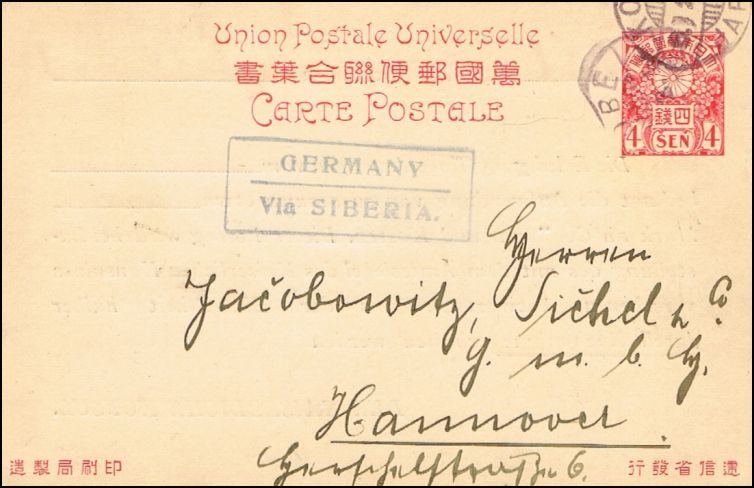 Union Postale Universelle
萬國郵便聯合葉書
CARTE POSTALE
大日本帝國郵便
四錢
4 SEN 4
GERMANY
Via SIBERIA.
Herren
Jacobowitz, Sichel & Co.
G. m. b. H.
Hannover.
Herschelstraße 6.
造製局刷印
行發省信逓